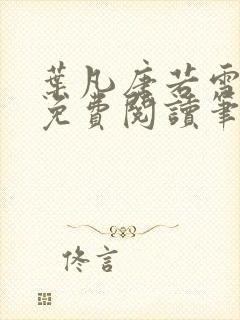 葉凡唐若雪
免費閱讀筆
佟言